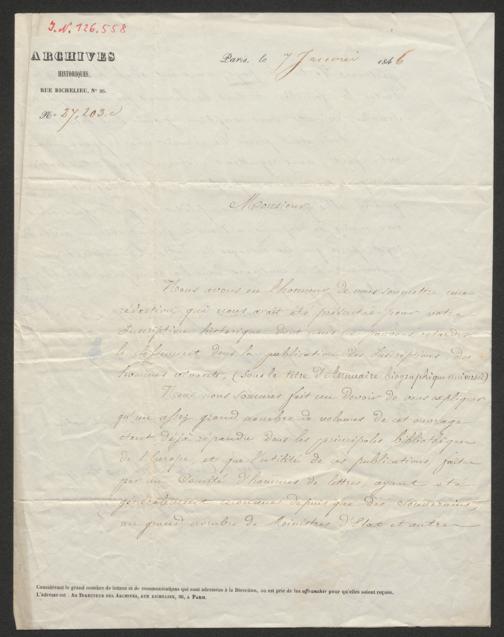 J.N. 126.558
ARCHIVES
HISTORIQUES.
RUE RICHELIEU, N° 95.
N° 37,203
Paris, le 7 Janvier 1846
Monsieur
Nous avons eu l'honneur de vous soumettre une
rédaction qui nous avait été présentée pour votre
Inscription historique dont nous
le dans la publication des Inscriptions des
hommes vivants, (sous le titre d'Annuaire biographique universel)
Nous nous sommes fait un devoir de vous expliquer
qu'un assez grand nombre de volumes de cet ouvrage
étant déjà répandu dans les principales bibliothèques
de l'Europe et que l'utilité de ces publications, faites
par un Comité d'hommes de lettres, ayant été
généralement depuis que des Souverains,
un grand nombre de Ministres d'Etat et autres
Considérant le grand nombre de lettres et de communications qui sont adressées à la Direction, on est prié de les affranchir pour qu'elles soient reçues.
L'adresse est : AU DIRECTEUR DES ARCHIVES, RUE RICHELIEU, 95, à PARIS.